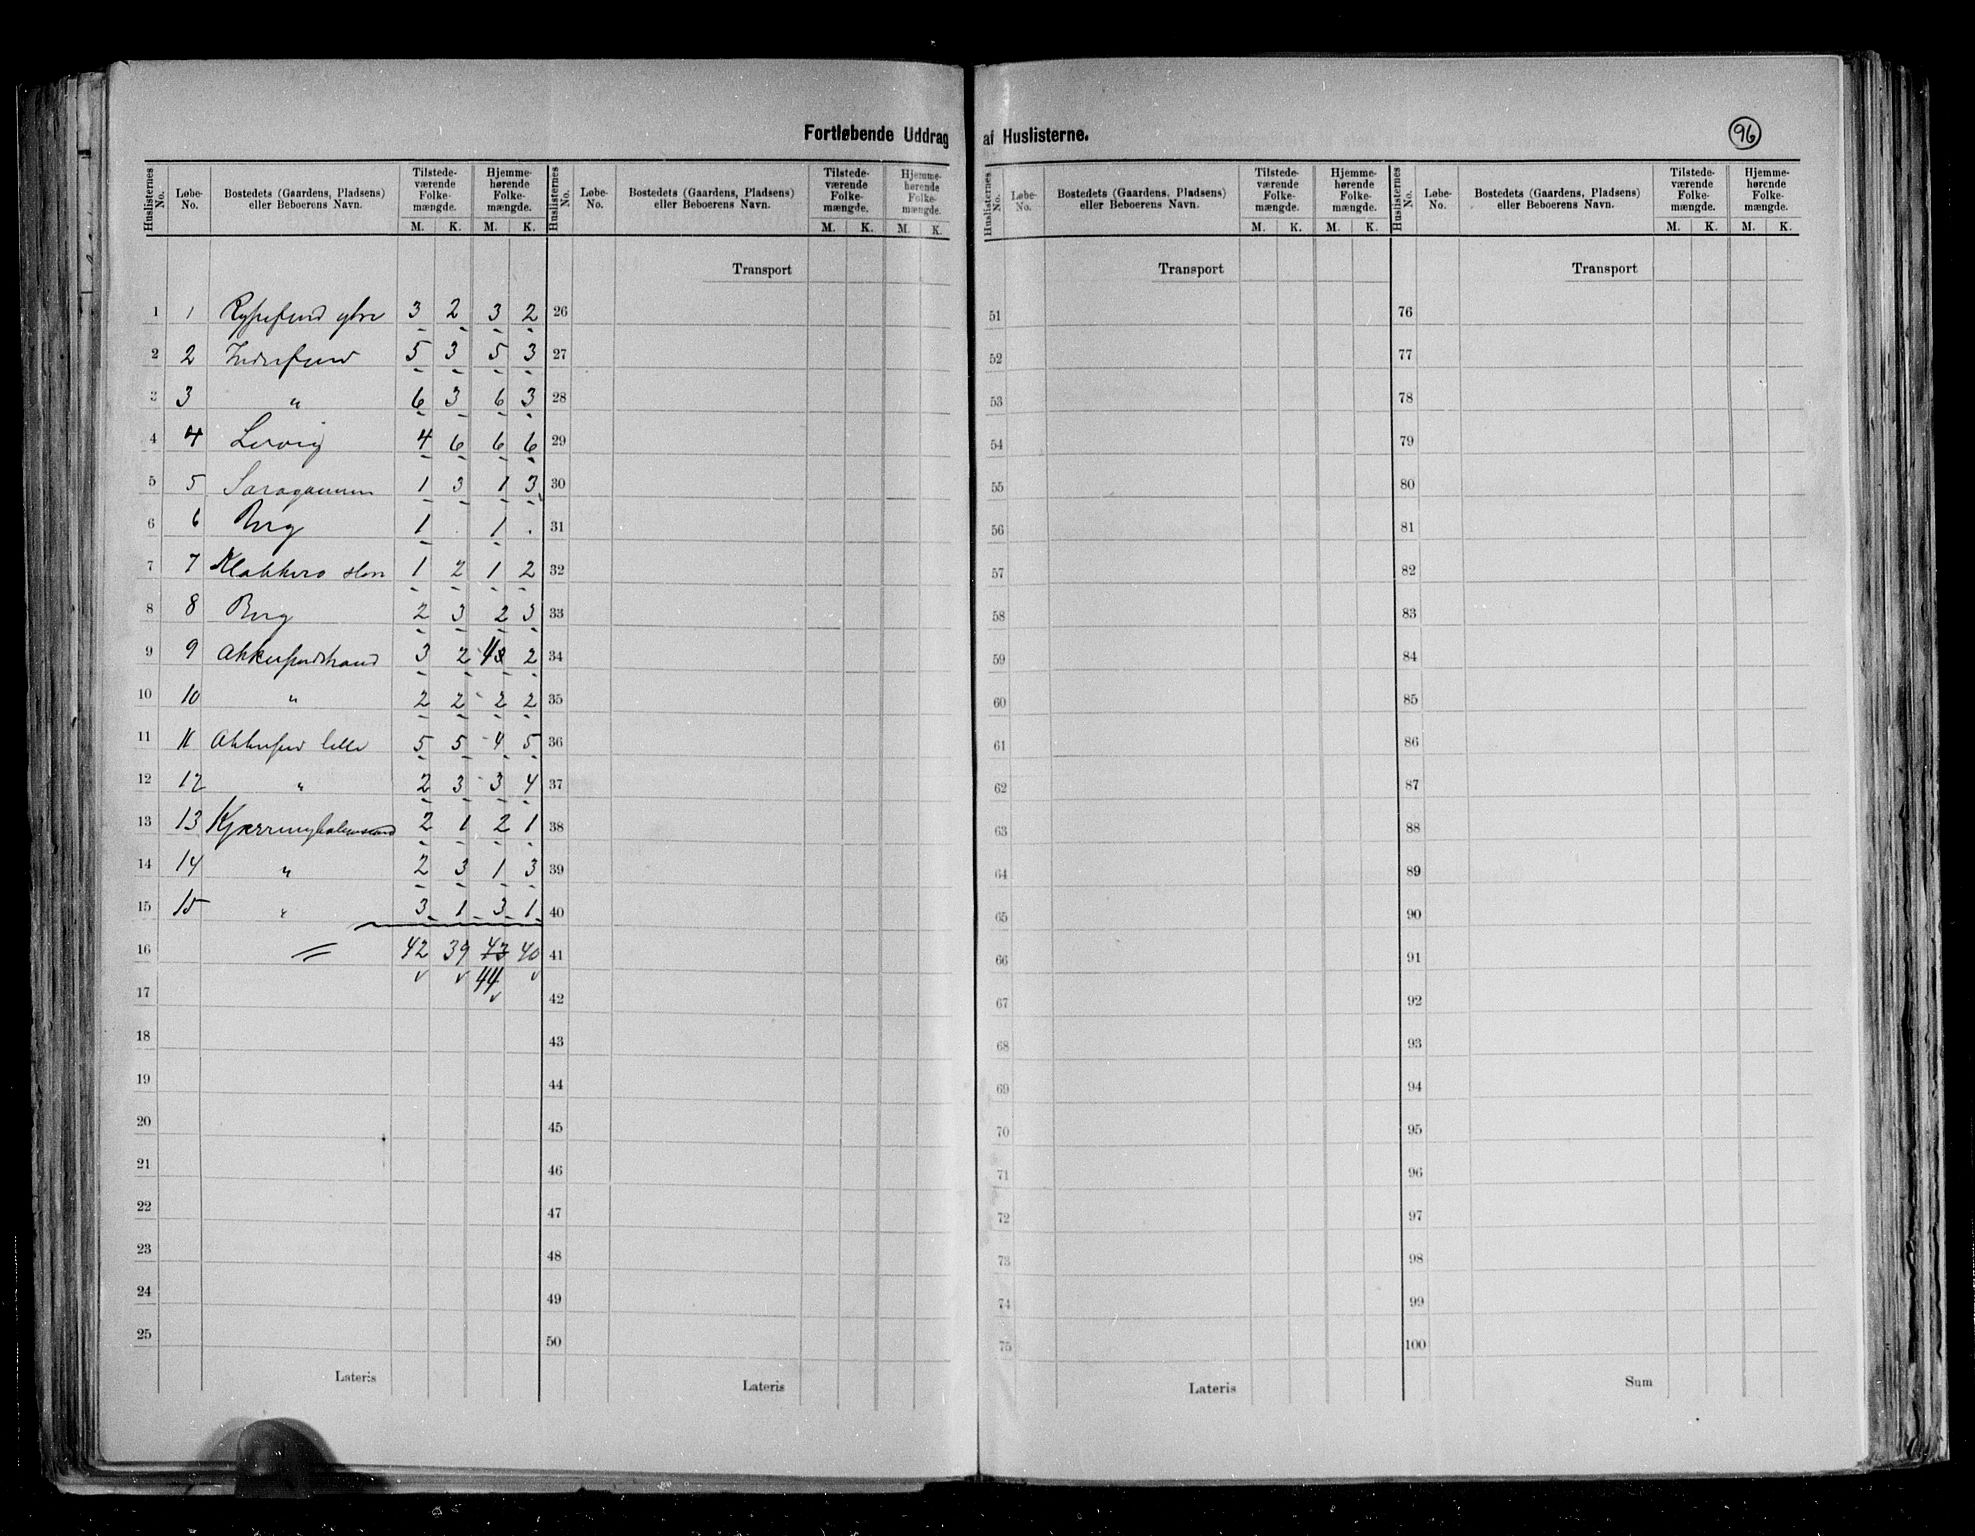 Fortløbende Uddrag af Huslisterne.
96
Huslisternes No. Løbe-No. Bostedets (Gaardens, Pladsens) eller Beboerens Navn. Tilstedeværende Folkemængde. M. K. Hjemmehørende Folkemængde. M. K.
Huslisternes No. Løbe-No. Bostedets (Gaardens, Pladsens) eller Beboerens Navn. Tilstedeværende Folkemængde. M. K. Hjemmehørende Folkemængde. M. K.
Huslisternes No. Løbe-No. Bostedets (Gaardens, Pladsens) eller Beboerens Navn. Tilstedeværende Folkemængde. M. K. Hjemmehørende Folkemængde. M. K.
Huslisternes No. Løbe-No. Bostedets (Gaardens, Pladsens) eller Beboerens Navn. Tilstedeværende Folkemængde. M. K. Hjemmehørende Folkemængde. M. K.
Transport Transport Transport
1 1 Rypefjord ytre 3 2 3 2 26 51 76
2 2 Indrefjord 5 3 5 3 27 52 77
3 3 " 6 3 6 3 28 53 78
4 4 Lervig 4 6 6 6 29 54 79
5 5 1 3 1 3 30 55 80
6 6 Berg 1 . 1 . 31 56 81
7 7 Klokkero 1 2 1 2 32 57 82
8 8 Berg 2 3 2 3 33 58 83
9 9 Akkerfjordstrand 3 2 4 2 34 59 84
10 10 " 2 2 2 2 35 60 85
11 11 Akkerfjord lille 5 5 4 5 36 61 86
12 12 " 2 3 3 4 37 62 87
13 13 Kjærringholmsund 2 1 2 1 38 63 88
14 14 " 2 3 1 3 39 64 89
15 15 " 3 1 3 1 40 65 90
16 42 39 43 40 41 66 91
44
17 42 67 92
18 43 68 93
19 44 69 94
20 45 70 95
21 46 71 96
22 47 72 97
23 48 73 98
24 49 74 99
25 50 75 100
Lateris Lateris Lateris Sum